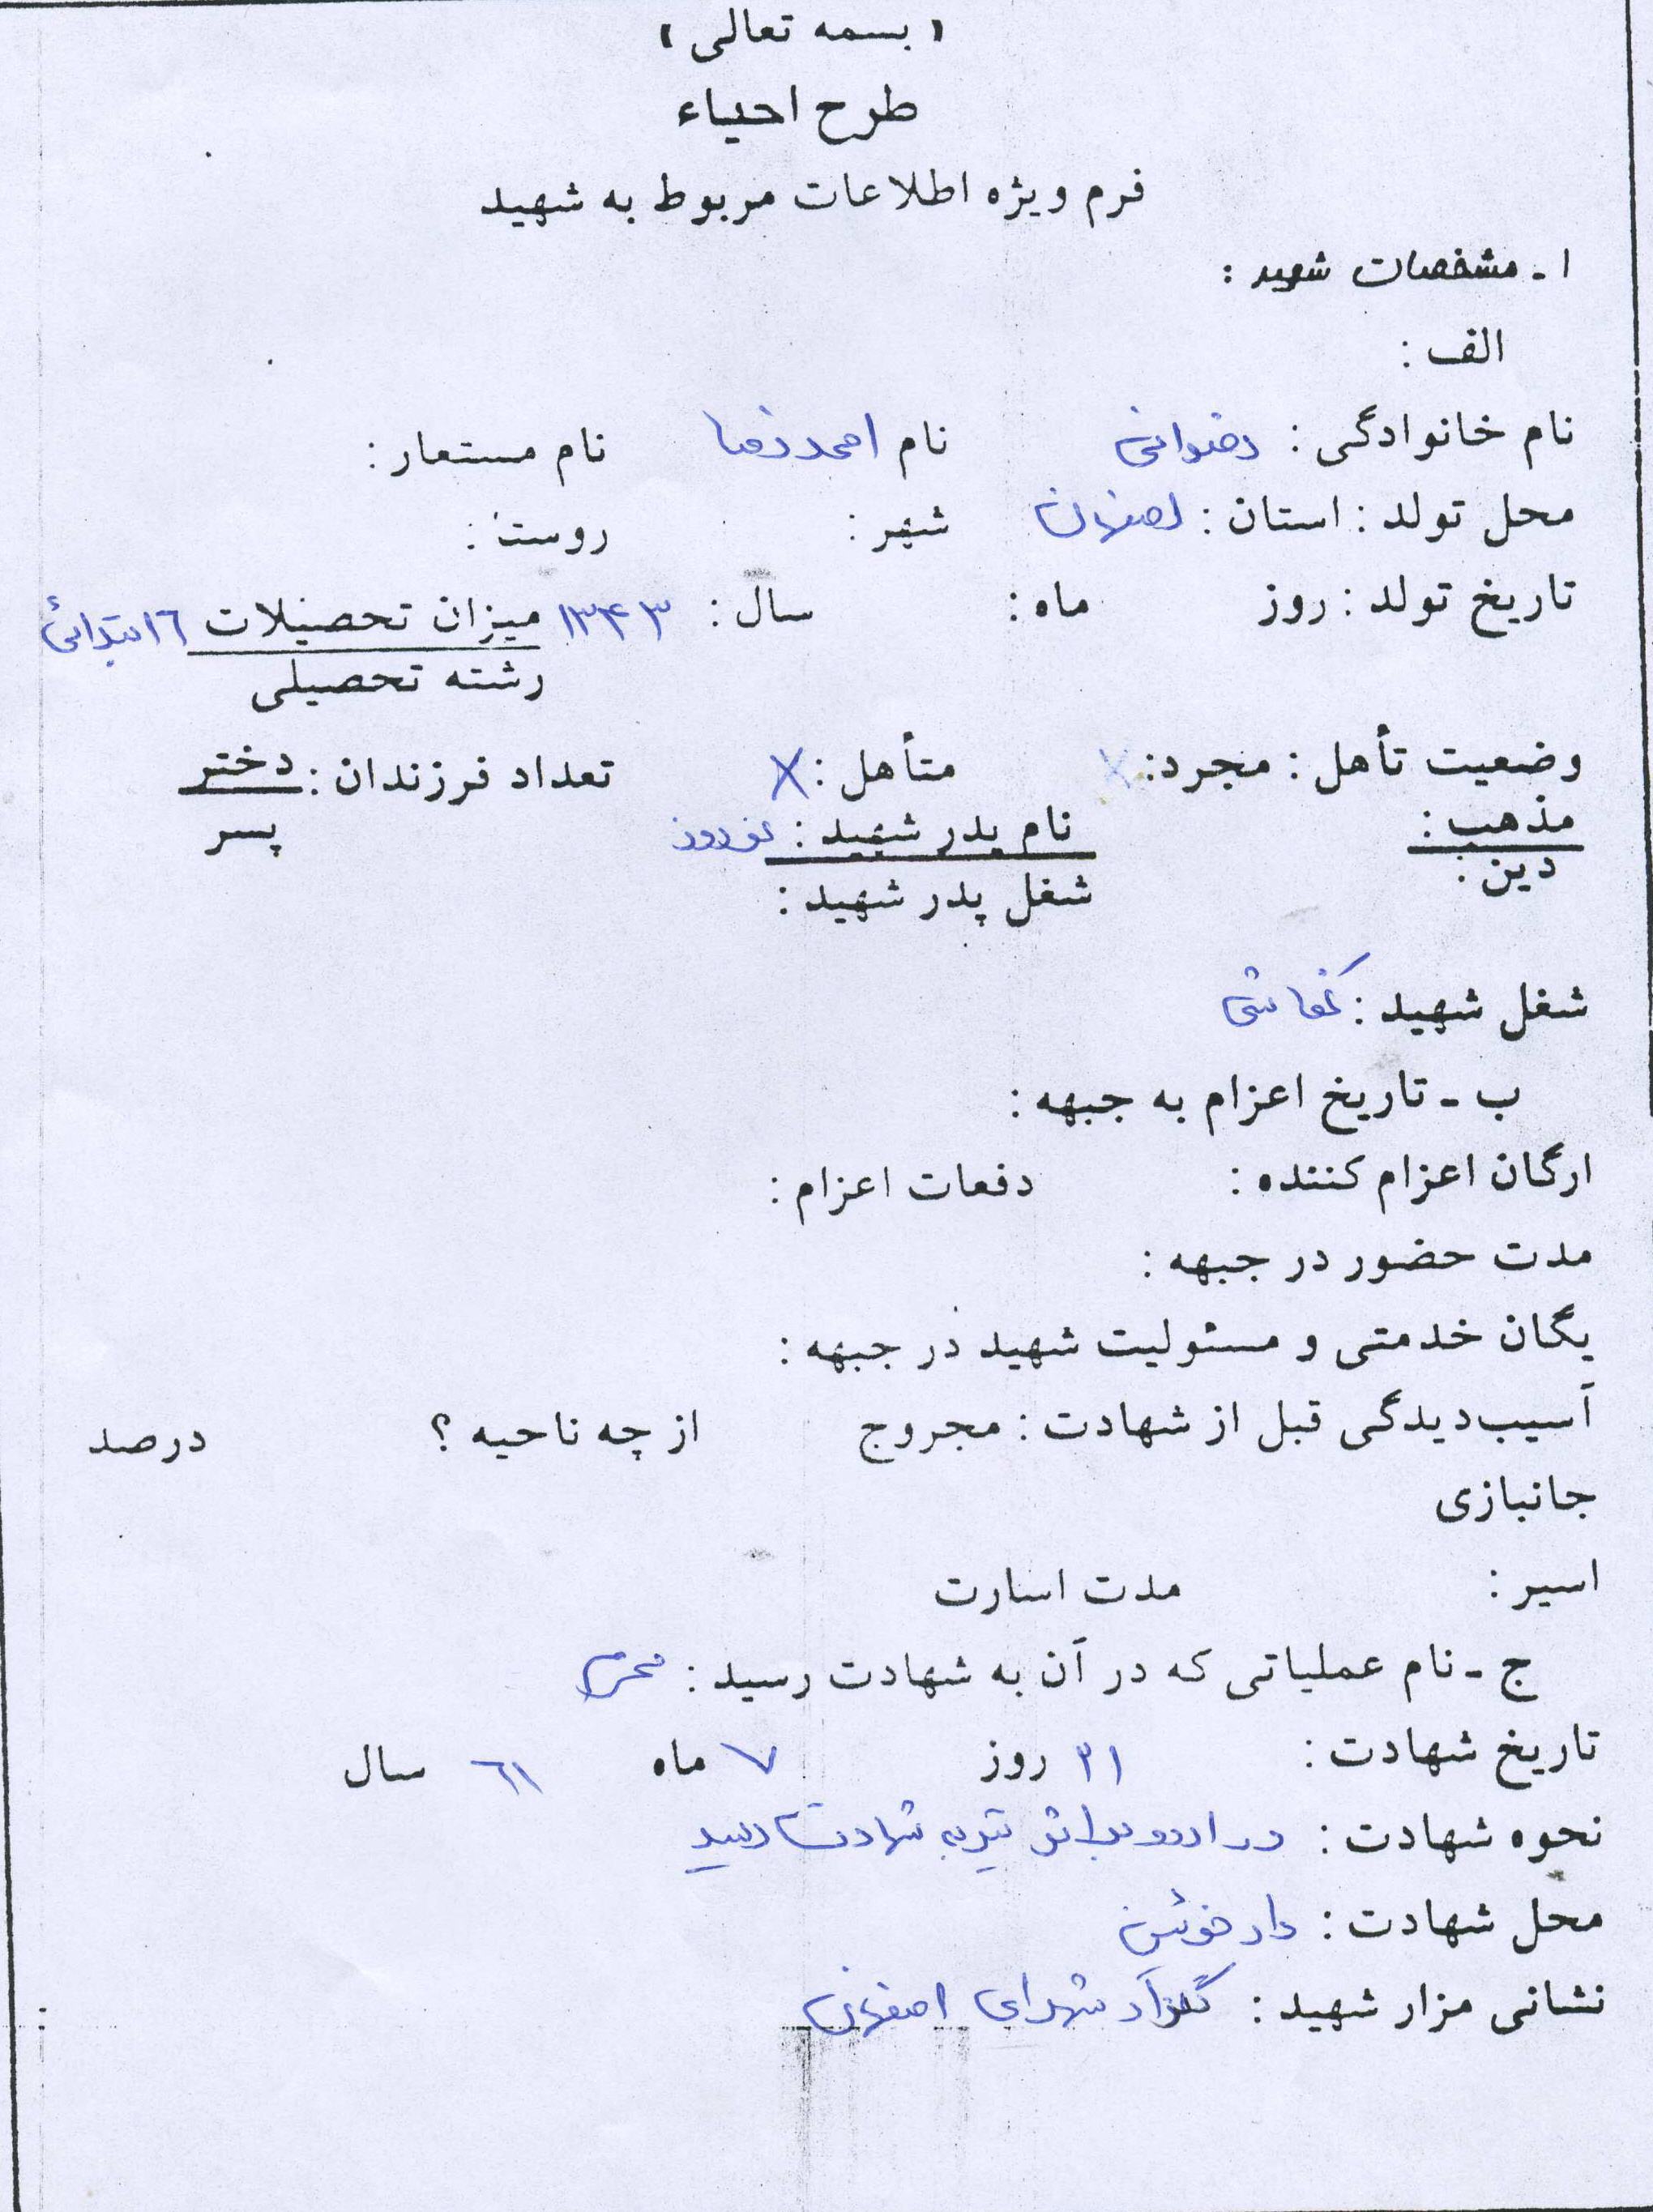 « بسمه تعالی »
طرح احیاء
فرم ویژه اطلاعات مربوط به شهید
۱ ـ مشخصات شهید :
الف :
نام خانوادگی : رضوانی نام احمدرضا نام مستعار :
محل تولد : استان : اصفهان شهر : روستا :
تاریخ تولد : روز ماه : سال : ۱۳۴۳ میزان تحصیلات ۶ ابتدائی
رشته تحصیلی
وضعیت تأهل : مجرد : X متأهل : X تعداد فرزندان : دختر
پسر
مذهب : نام پدر شهید : نوروز
دین : شغل پدر شهید :
شغل شهید : کفاشی
ب ـ تاریخ اعزام به جبهه :
ارگان اعزام کننده : دفعات اعزام :
مدت حضور در جبهه :
یگان خدمتی و مسئولیت شهید در جبهه :
آسیب‌دیدگی قبل از شهادت : مجروح از چه ناحیه ؟ درصد
جانبازی
اسیر : مدت اسارت
ج ـ نام عملیاتی که در آن به شهادت رسید : محرم
تاریخ شهادت : ۲۱ روز ۷ ماه ۶۱ سال
نحوه شهادت : در اردو بر اثر تیر به شهادت رسید
محل شهادت : دارخوئین
نشانی مزار شهید : گلزار شهدای اصفهان